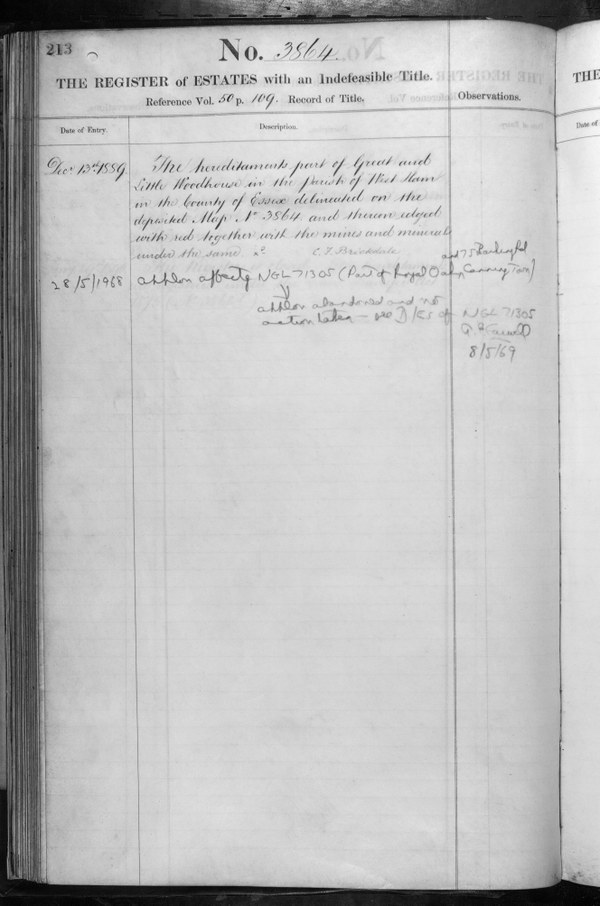 213
No. 3864.
THE REGISTER of ESTATES with an Indefeasible Title.
Reference Vol. 50 p. 109. Record of Title.
Observations.
Date of Entry.
Description.
Decr. 13th 1889
The hereditaments part of Great and
Little Woodhouse in the Parish of West Ham
in the County of Essex delineated on the
deposited Map No 3864 and therein edged
with red together with the mines and minerals
under the same
C. F. Brickdale
and 75 Barking Rd
28/5/1968
applon affectg NGL 71305 (Part of Royal Oak, Canning Town)
applon abandoned and no
action taken — see D/Ks of NGL 71305
8/5/69
THE
Date of